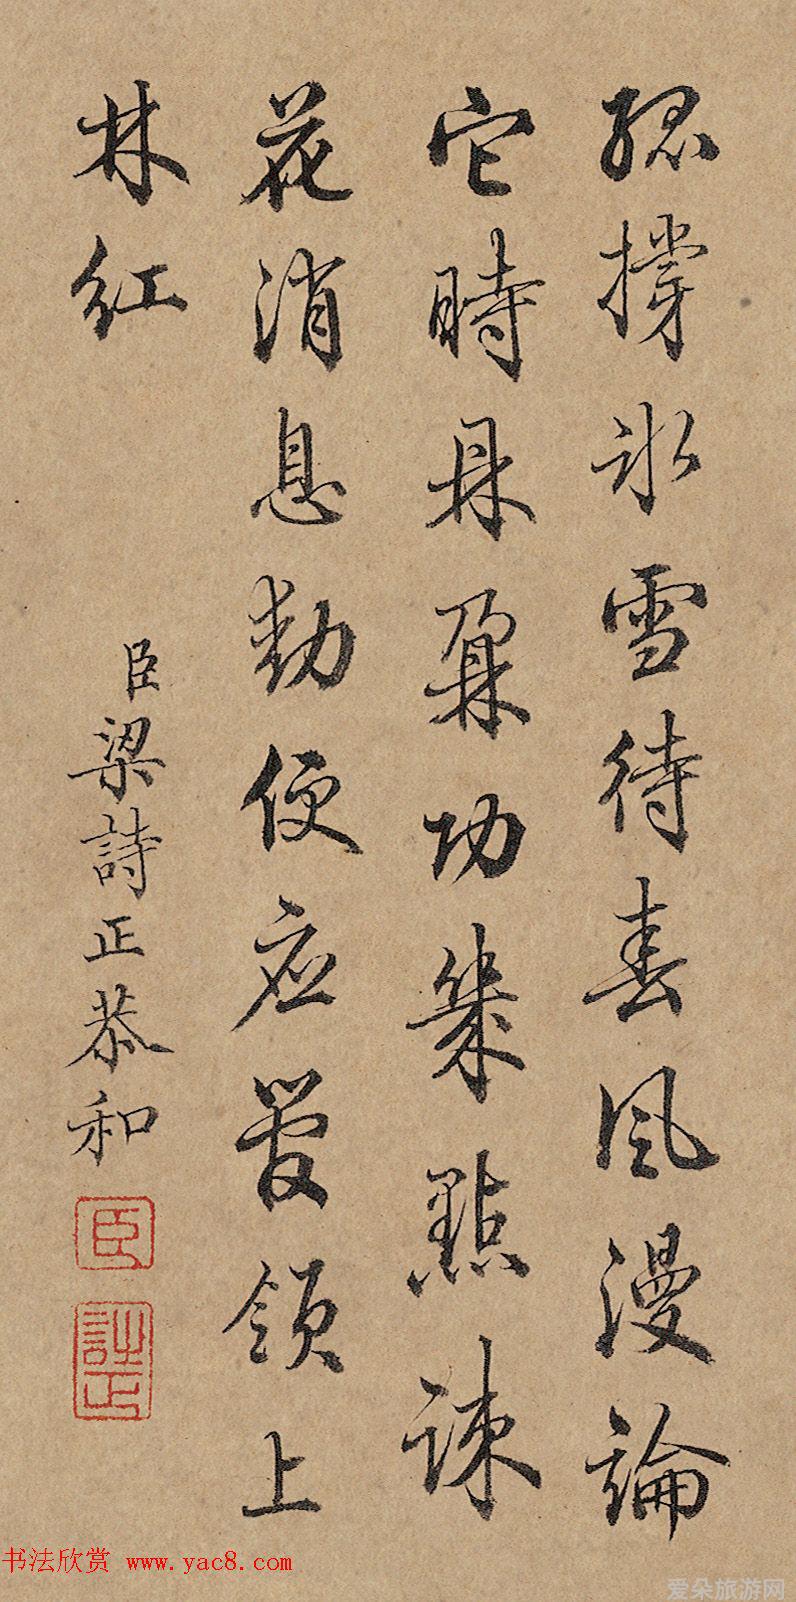 孤撐冰雪待春風漫論
它時鼎鼐功幾點疎
花消息動便應管領上
林紅
臣梁詩正恭和
臣
詩正
书法欣赏 www.yac8.com
爱朵旅游网